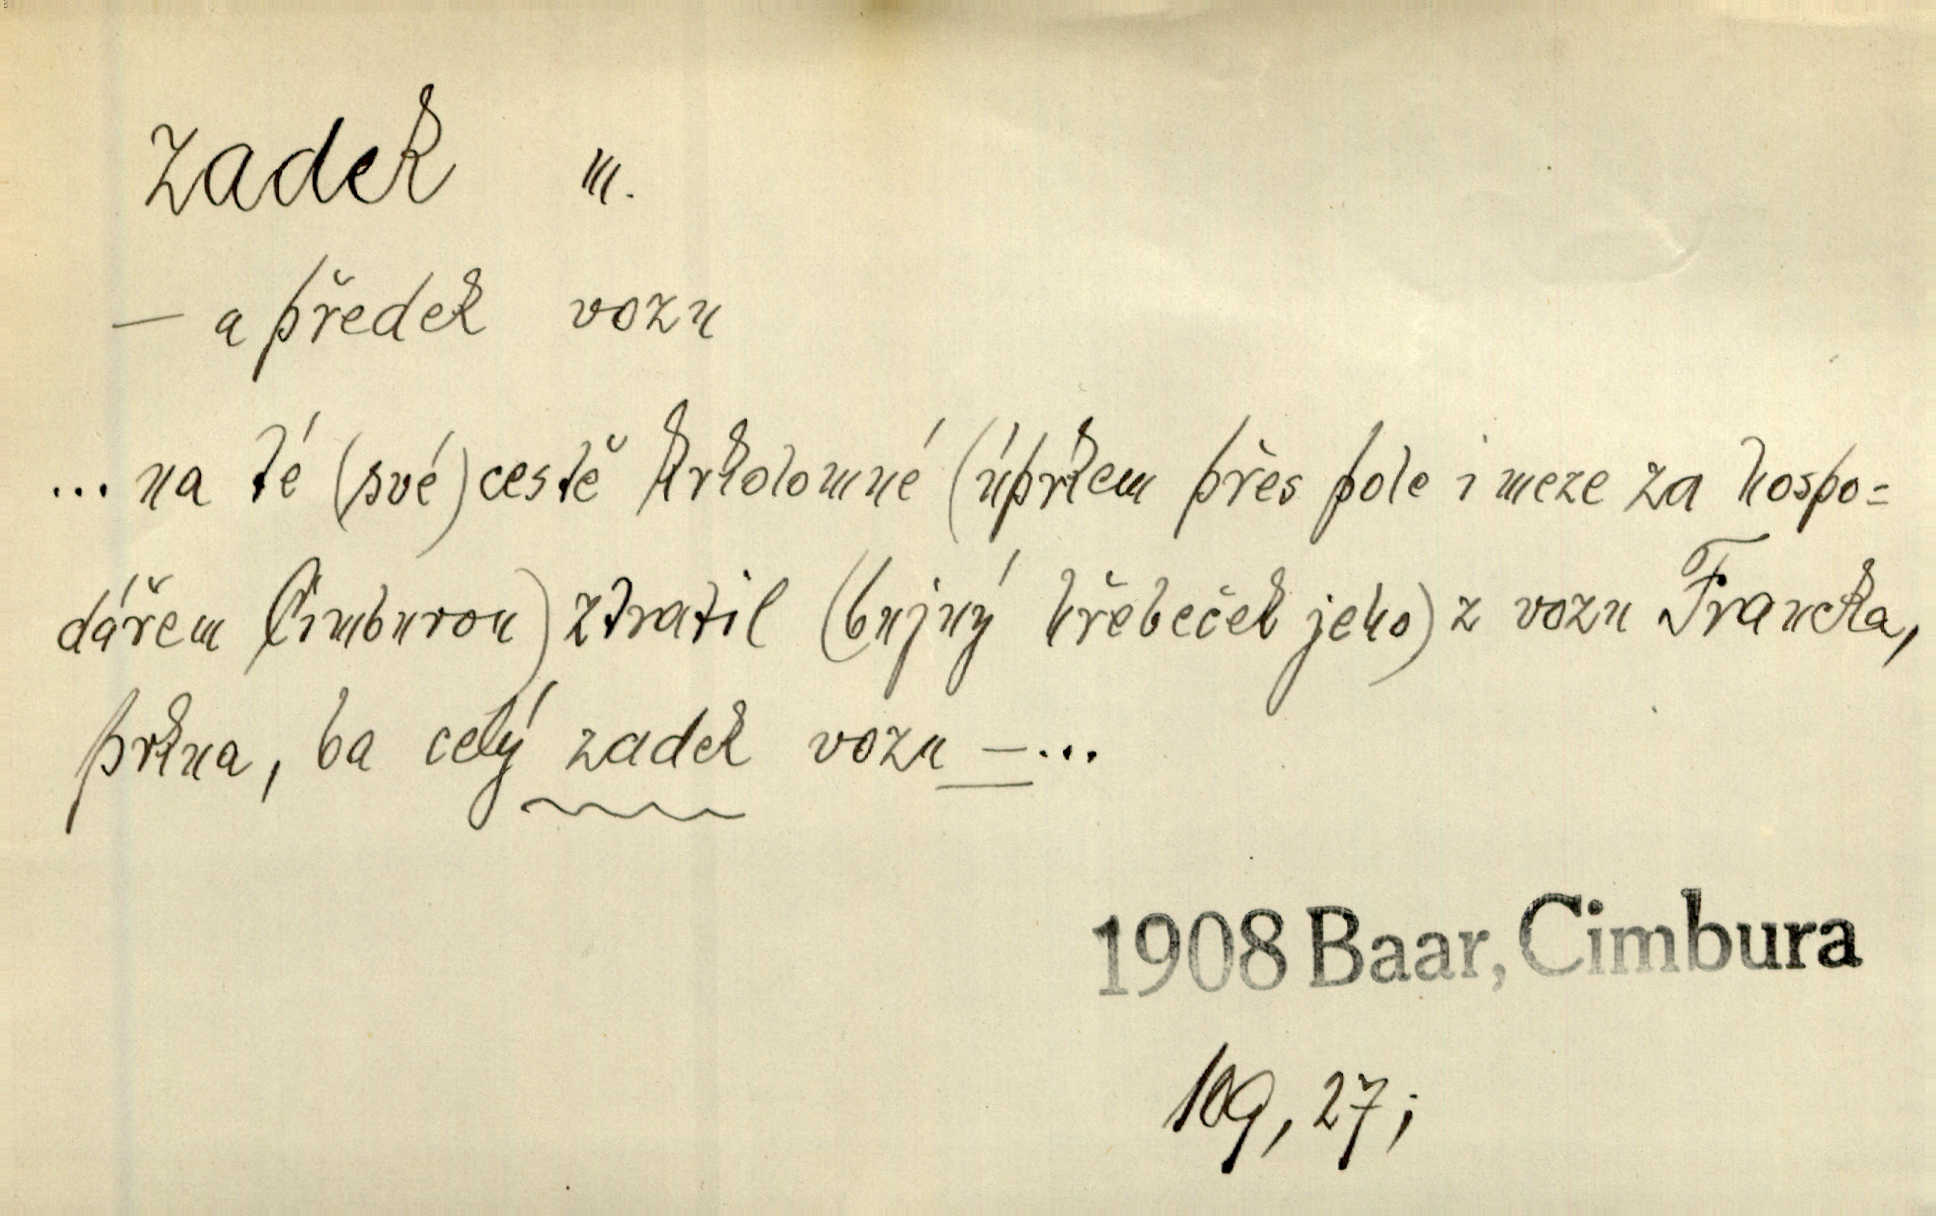 zadek m.
— a předek vozu
... na té (své) cestě krkolomné (úprkem přes pole i meze za hospo=
dářem Cimburou) ztratil (bujný hřebeček jeho) z vozu Francka,
prkna, ba celý zadek vozu — ...
1908 Baar, Cimbura
109, 27;